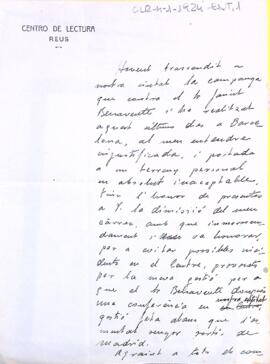 CLR-4-1-1924-ENT,1
CENTRO DE LECTURA
REUS
Havent transcendit a
nostra ciutat la campanya
que contra el Sr Jacint
Benavente s'ha realitzat
aquest ultims dies a Barce
lona, al meu entendre
injustificada, i portada
a un terreny personal
en absolut inacceptable,
tinc l'honor de presentar
a V. la dimissió del meu
càrrec, amb que immereixe
dament va honorar,
per a evitar possibles inci
dents en el Centre, provocats
per la meva gestió per a
que el Sr Benavente donques
una conferència en
gestió feta abans que l'es
mentat senyor sortis de
Madrid.
Agraint a tots els com